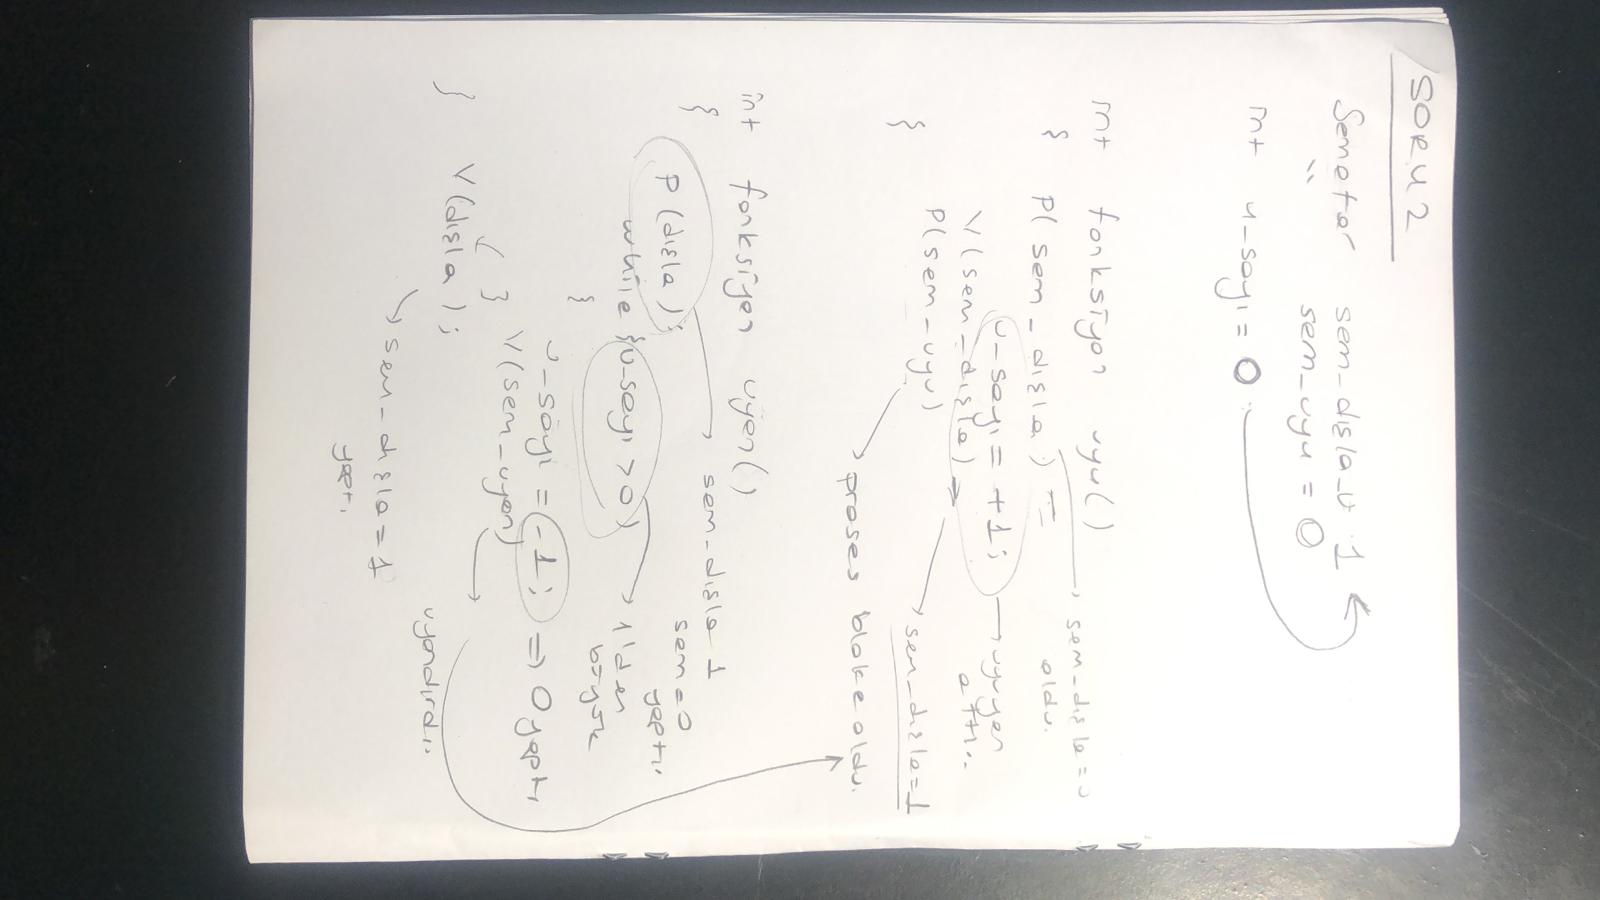 SORU 2
Semafor sem_dışla = 1
" sem_uyu = 0
int u_sayı = 0
int fonksiyon uyu()
{ P(sem_dışla) = sem_dışla = 0 oldu.
u_sayı = +1; → uyuyan arttı.
V(sem_dışla) → sem_dışla = 1
P(sem_uyu) → proses bloke oldu.
}
int fonksiyon uyan()
{
P(dışla); sem_dışla 1 sem = 0 yaptı.
while (u_sayı > 0) → 1'den büyük
{
u_sayı = -1; ⇒ 0 yaptı
V(sem_uyan) → uyandırdı..
}
V(dışla); → sem_dışla = 1 yaptı.
}